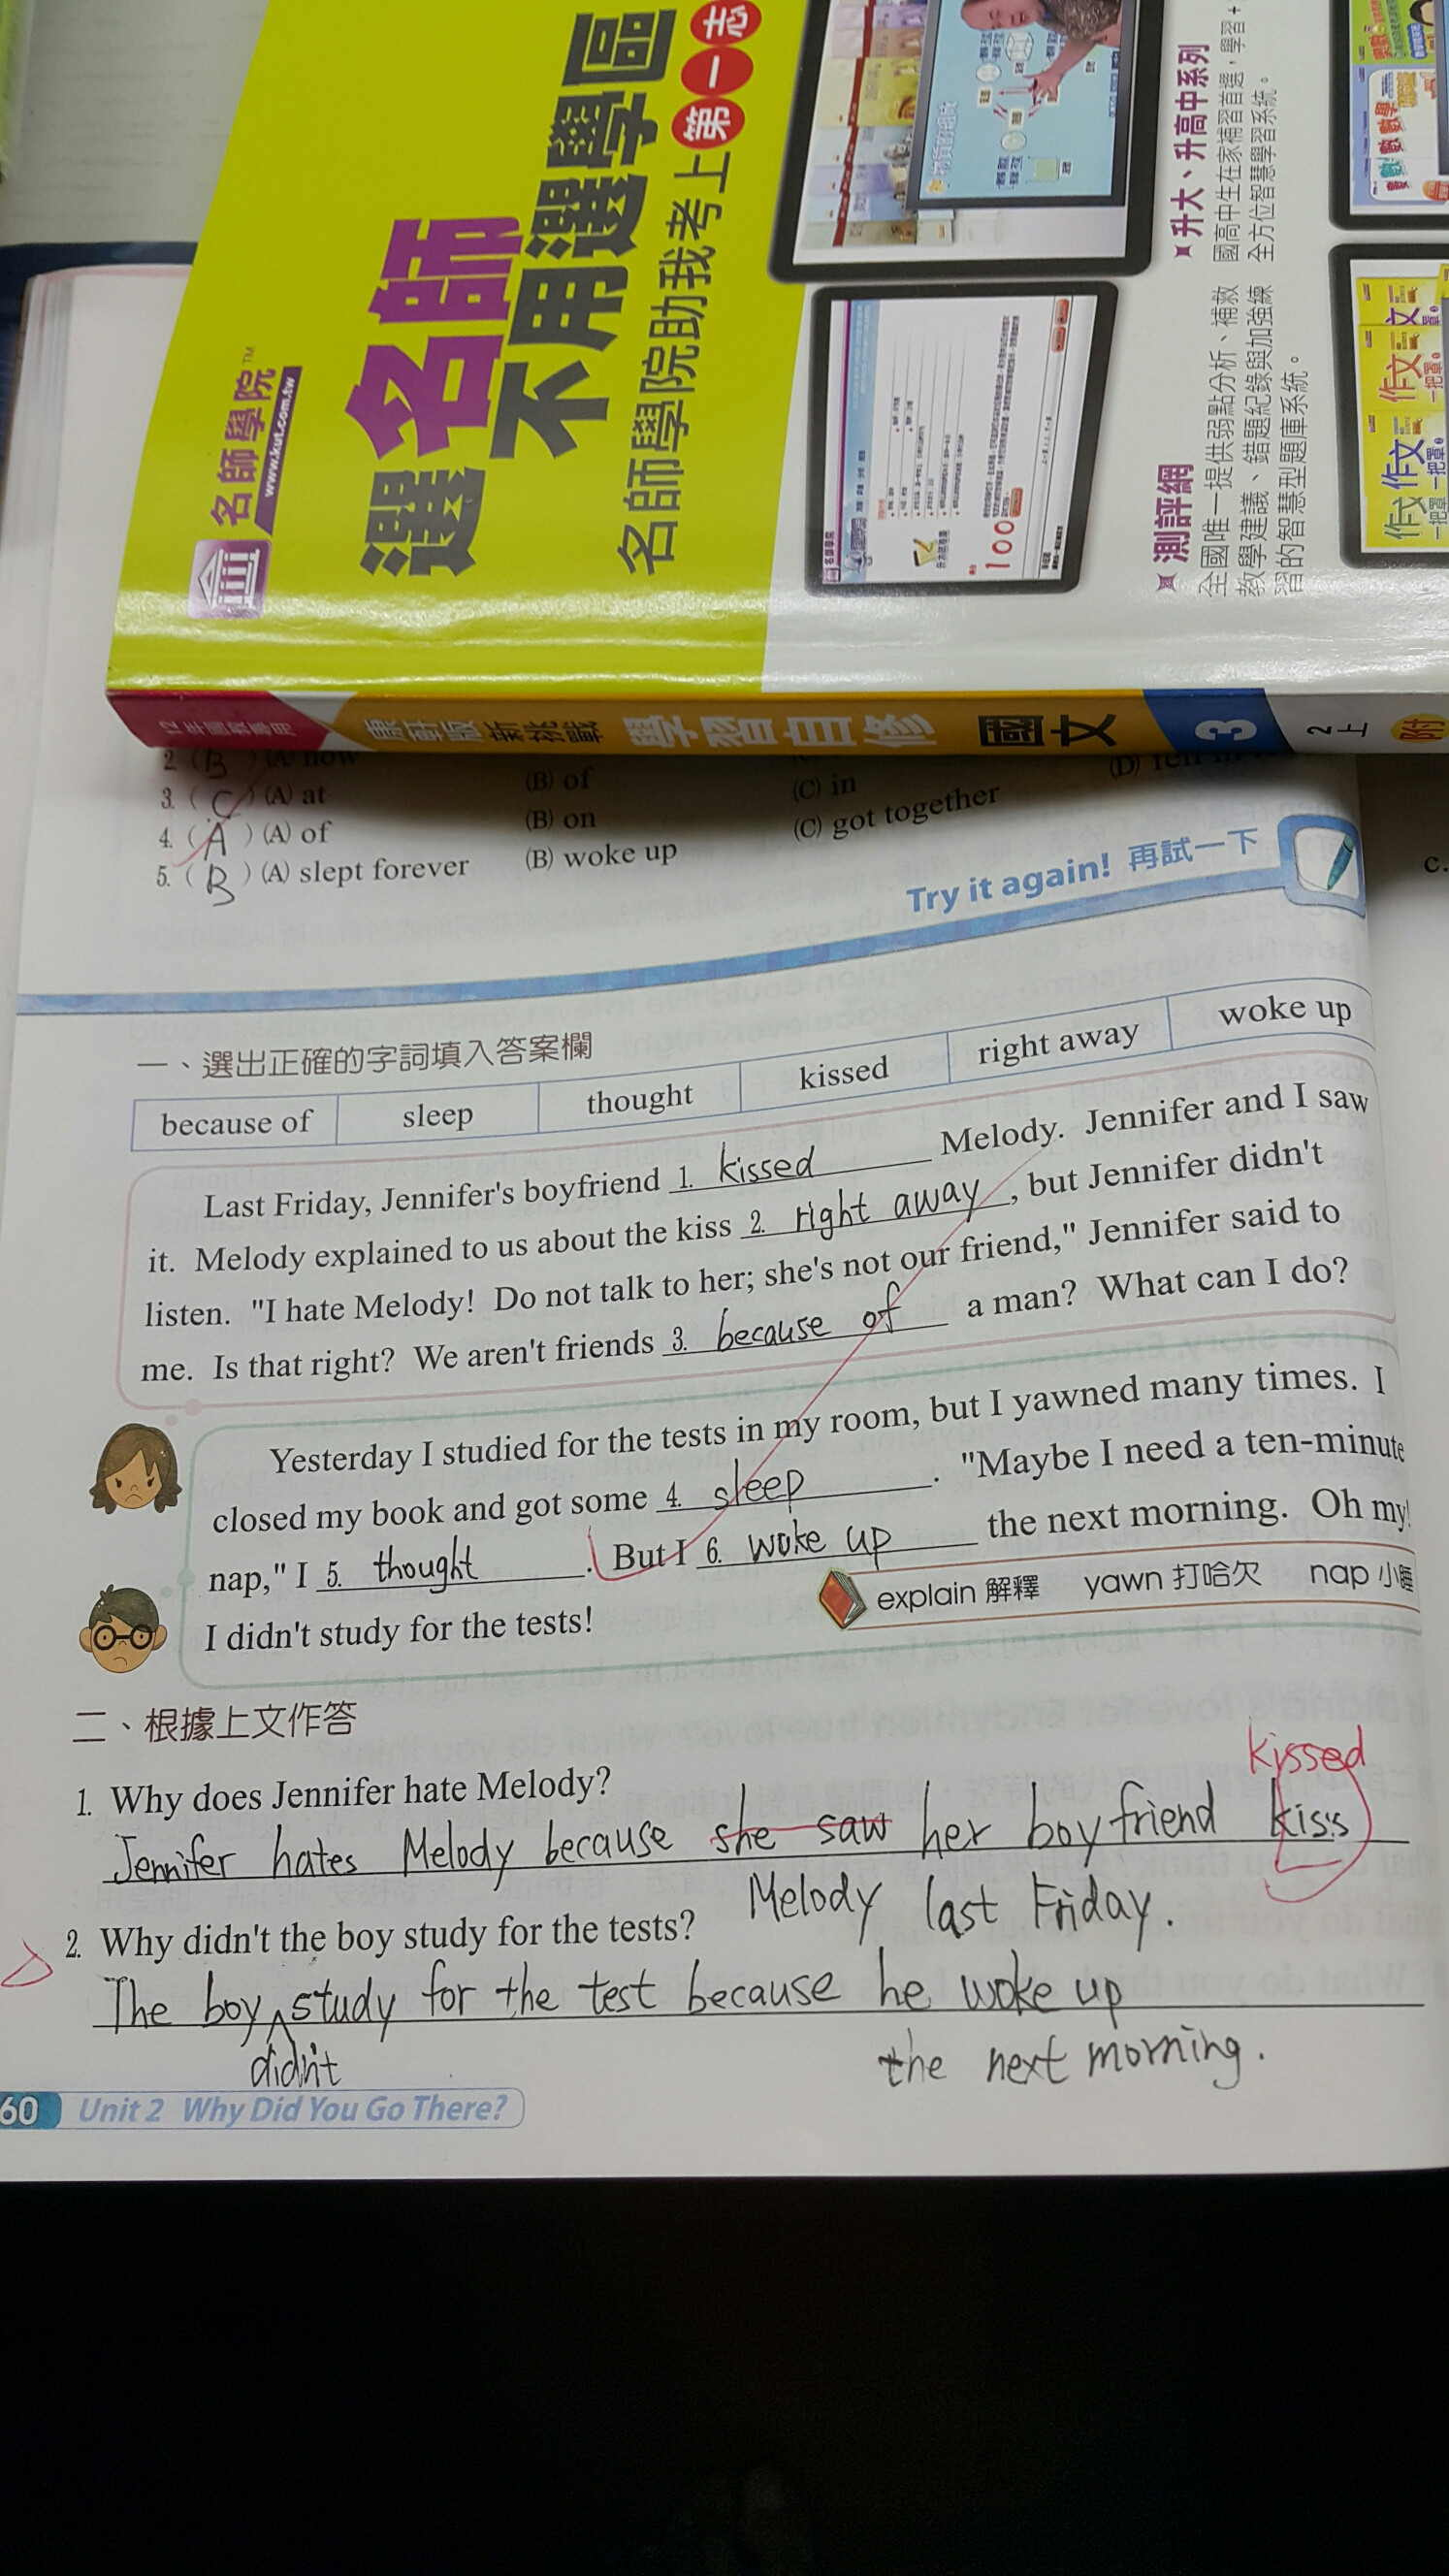 名師學院™
www.kut.com.tw
選名師
不用選學區
名師學院助我考上第一志
測評網
全國唯一提供弱點分析、補救
教學建議、錯題紀錄與加強練
習的智慧型題庫系統。
升大、升高中系列
國高中生在家補習首選，學習+
全方位智慧學習系統。
100
作文
一把罩
作文
一把罩
作文
一把罩
康軒版 新挑戰 學習自修 國文 3 2上 附
2. ( B ) (A) now
(B) of
3. ( C ) (A) at
(B) on
(C) in
4. ( A ) (A) of
(B) woke up
(C) got together
(D) fell in
5. ( B ) (A) slept forever
Try it again! 再試一下
c.
一、選出正確的字詞填入答案欄
because of sleep thought kissed right away woke up
Last Friday, Jennifer's boyfriend 1. kissed Melody. Jennifer and I saw
it. Melody explained to us about the kiss 2. right away, but Jennifer didn't
listen. "I hate Melody! Do not talk to her; she's not our friend," Jennifer said to
me. Is that right? We aren't friends 3. because of a man? What can I do?
Yesterday I studied for the tests in my room, but I yawned many times. I
closed my book and got some 4. sleep. "Maybe I need a ten-minute
nap," I 5. thought. But I 6. woke up the next morning. Oh my!
I didn't study for the tests!
explain 解釋 yawn 打哈欠 nap 小睡
二、根據上文作答
1. Why does Jennifer hate Melody?
kissed
Jennifer hates Melody because she saw her boyfriend kiss
Melody last Friday.
2. Why didn't the boy study for the tests?
The boy study for the test because he woke up
didn't
the next morning.
60 Unit 2 Why Did You Go There?